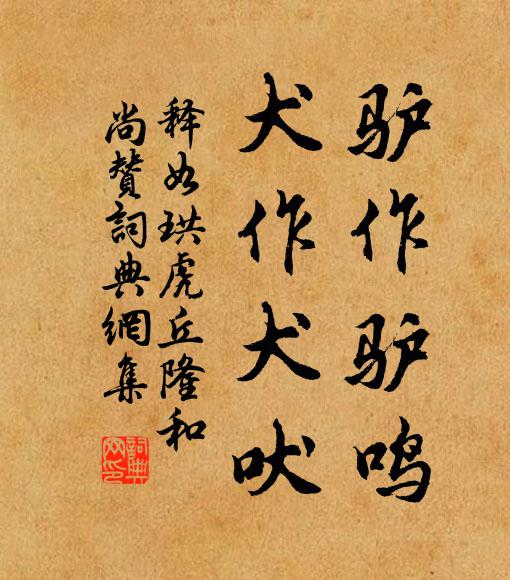 驴作驴鸣
犬作犬吠
释如珙虎丘隆和
尚赞詞典網集
詞典网印